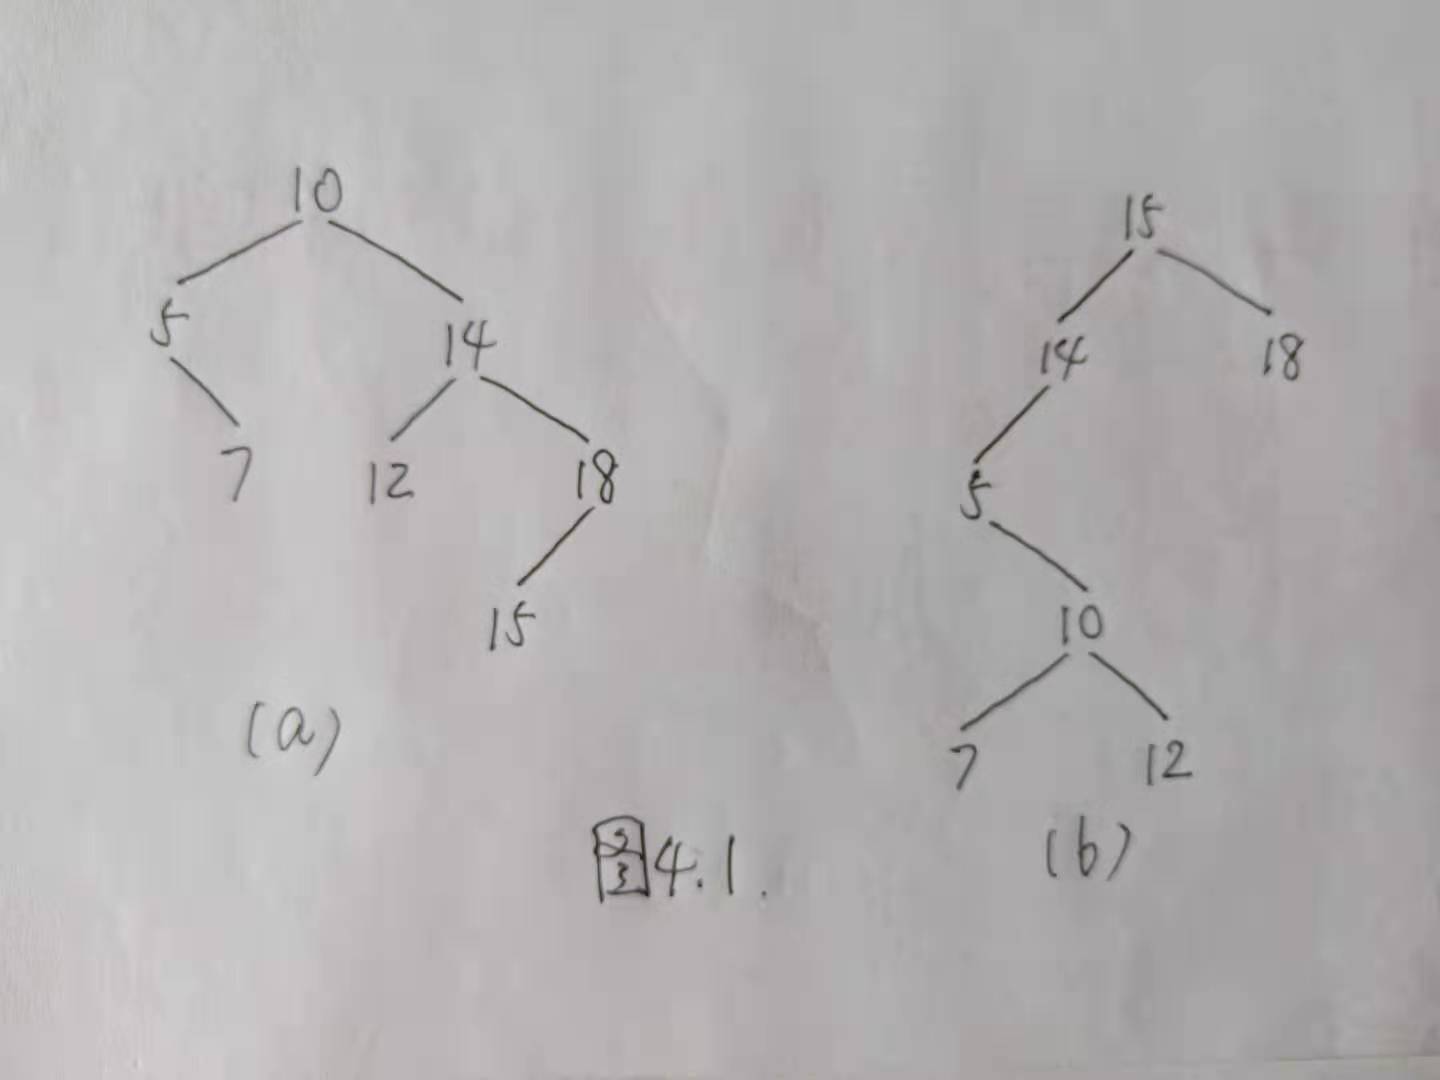 10
5 14
7 12 18
15
(a)
15
14 18
5
10
7 12
(b)
图4.1.